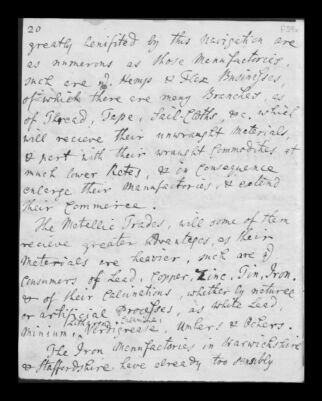 20
greatly benifited by this Navigation are
as numerous as those Manufactories,
such are ye Hemp & Flex Businesses,
of which there are many Branches, as
of Thread, Tape, Sail-Cloths, &c. which
will recieve their unwraught Materials,
& part with their wraught Commodities at
much lower Rates, & in Consequence
enlarge their Manufactories, & extend
their Commerce.
The Metallic Trades, will some of them
recieve greater advantages, as their
Materials are heavier, such are ye
Consumers of Lead, Copper, Zinc, Tin, Iron.
& of their Calcinations, whether by nature
or artificial Processes, as White Lead,
Minium, Verdigrease, Umbers & Others.
The Iron Manufactories in Warwickshire
& Staffordshire have already too sensibly